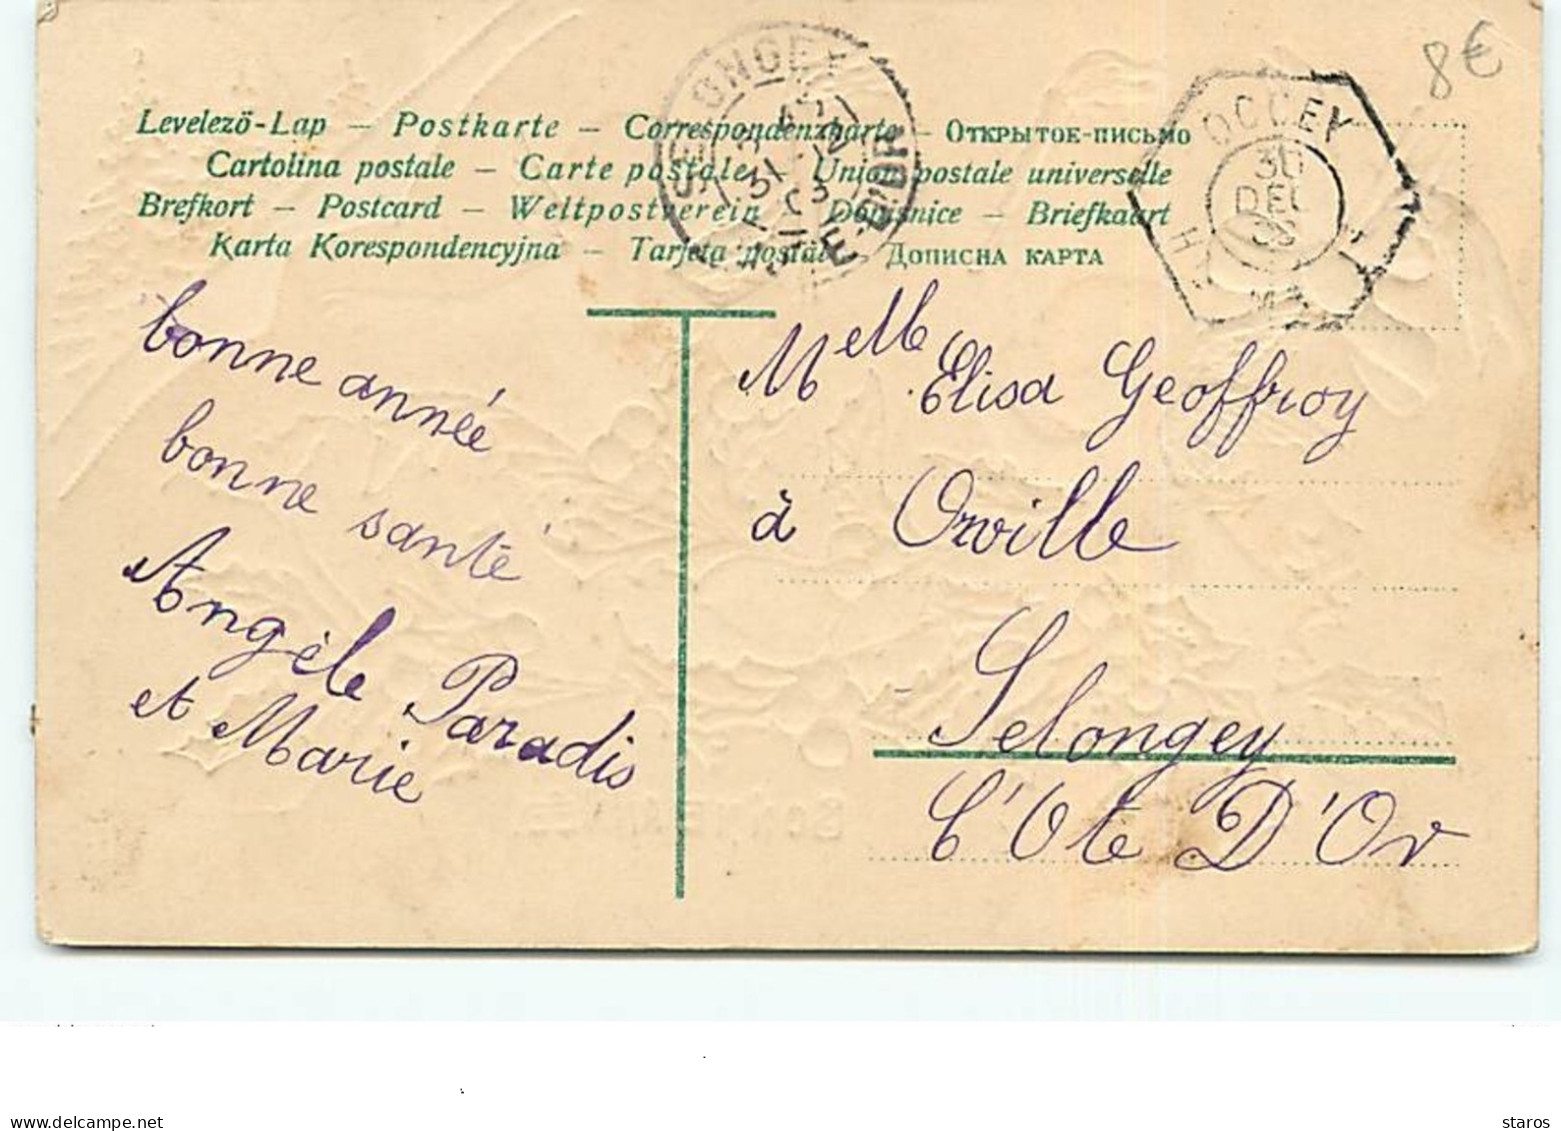 8€
Levelező-Lap – Postkarte – Correspondenzkarte – Открытое-письмо
Cartolina postale – Carte postale – Union postale universelle
Brefkort – Postcard – Weltpostverein – Dopisnice – Briefkaart
Karta Korespondencyjna – Tarjeta postal – Дописна карта
SELONGEY
31 12
03
CÔTE-D'OR
OCCEY
30
DEC
bonne année
bonne santé
Angèle Paradis
et Marie
Melle Elisa Geoffroy
à Orville
Selongey
C'Ote D'Or
www.delcampe.net
staros